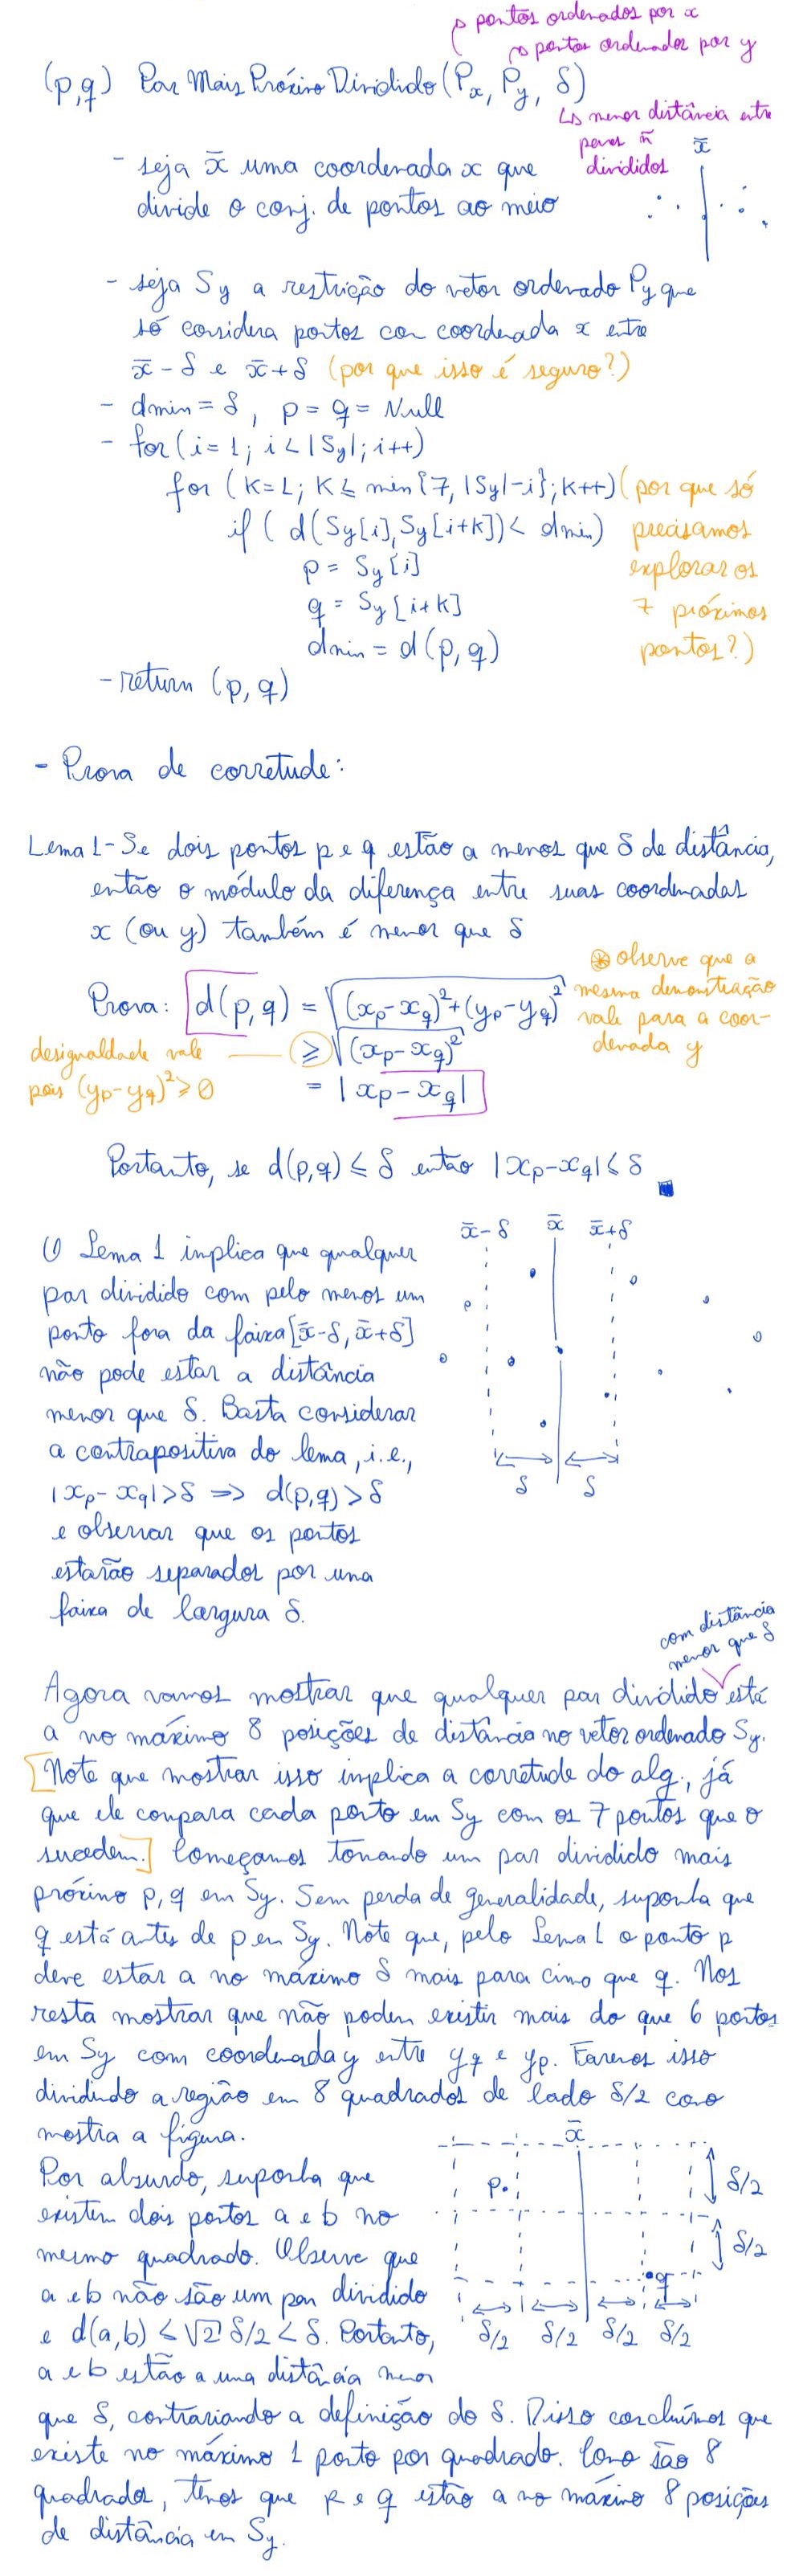 pontos ordenados por x
pontos ordenados por y
(p,q) Par Mais Próximo Dividido (Px, Py, δ)
menor distância entre
pares ñ
divididos
x̄
- seja x̄ uma coordenada x que
divide o conj. de pontos ao meio
- seja Sy a restrição do vetor ordenado Py que
só considera pontos com coordenada x entre
x̄ - δ e x̄ + δ (por que isso é seguro?)
- dmin = δ, p = q = Null
- for (i = 1; i < |Sy|; i++)
for (k = 1; k ≤ min{7, |Sy|-i}; k++) (por que só
if ( d(Sy[i], Sy[i+k]) < dmin) precisamos
p = Sy[i] explorar os
q = Sy[i+k] 7 próximos
dmin = d(p,q) pontos?)
- return (p,q)
- Prova de corretude:
Lema 1 - Se dois pontos p e q estão a menos que δ de distância,
então o módulo da diferença entre suas coordenadas
x (ou y) também é menor que δ
⊛ observe que a
mesma demonstração
vale para a coor-
denada y
Prova: d(p,q) = √(xp-xq)²+(yp-yq)²
desigualdade vale ≥ √(xp-xq)²
pois (yp-yq)² ≥ 0 = |xp-xq|
Portanto, se d(p,q) ≤ δ então |xp-xq| ≤ δ
x̄-δ x̄ x̄+δ
O Lema 1 implica que qualquer
par dividido com pelo menos um
ponto fora da faixa [x̄-δ, x̄+δ]
não pode estar a distância
menor que δ. Basta considerar
a contrapositiva do lema, i.e.,
|xp-xq| > δ => d(p,q) > δ
e observar que os pontos
estarão separados por uma
faixa de largura δ.
δ δ
com distância
menor que δ
Agora vamos mostrar que qualquer par dividido está
a no máximo 8 posições de distância no vetor ordenado Sy.
[Note que mostrar isso implica a corretude do alg., já
que ele compara cada ponto em Sy com os 7 pontos que o
sucedem.] Começamos tomando um par dividido mais
próximo p, q em Sy. Sem perda de generalidade, suponha que
q está antes de p em Sy. Note que, pelo Lema 1 o ponto p
deve estar a no máximo δ mais para cima que q. Nos
resta mostrar que não podem existir mais do que 6 pontos
em Sy com coordenada y entre yq e yp. Faremos isso
dividindo a região em 8 quadrados de lado δ/2 como
mostra a figura.
Por absurdo, suponha que
existem dois pontos a e b no
mesmo quadrado. Observe que
a e b não são um par dividido
e d(a,b) ≤ √2 δ/2 < δ. Portanto,
a e b estão a uma distância menor
que δ, contrariando a definição do δ. Disso concluímos que
existe no máximo 1 ponto por quadrado. Como são 8
quadrados, temos que p e q estão a no máximo 8 posições
de distância em Sy.
x̄
p
δ/2
δ/2
q
δ/2 δ/2 δ/2 δ/2